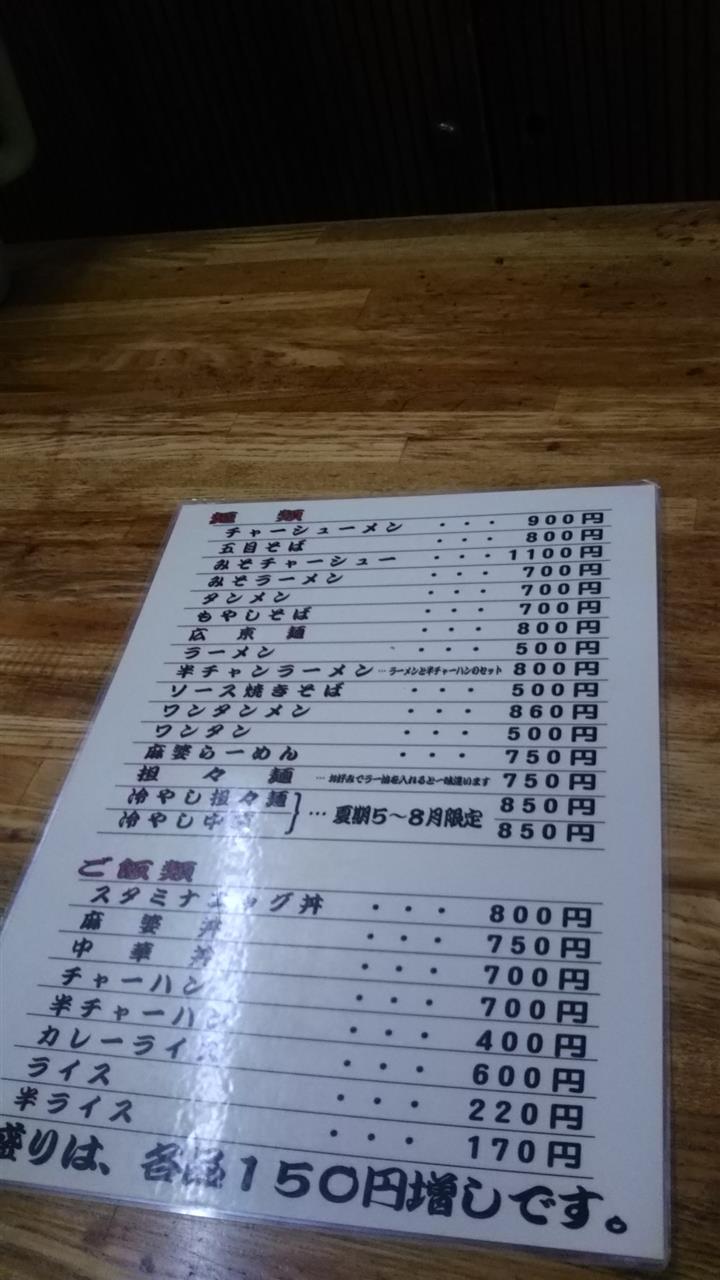 麺類
チャーシューメン ・・・ 900円
五目そば ・・・ 800円
みそチャーシュー ・・・ 1100円
みそラーメン ・・・ 700円
タンメン ・・・ 700円
もやしそば ・・・ 700円
広東麺 ・・・ 800円
ラーメン ・・・ 500円
半チャンラーメン …ラーメンと半チャーハンのセット 800円
ソース焼きそば ・・・ 500円
ワンタンメン ・・・ 860円
ワンタン ・・・ 500円
麻婆らーめん ・・・ 750円
担々麺 …お好みでラー油を入れると一味違います 750円
冷やし担々麺 850円
}…夏期5〜8月限定
冷やし中華 850円
ご飯類
スタミナエッグ丼 ・・・ 800円
麻婆丼 ・・・ 750円
中華丼 ・・・ 700円
チャーハン ・・・ 700円
半チャーハン ・・・ 400円
カレーライス ・・・ 600円
ライス ・・・ 220円
半ライス ・・・ 170円
盛りは、各品150円増しです。